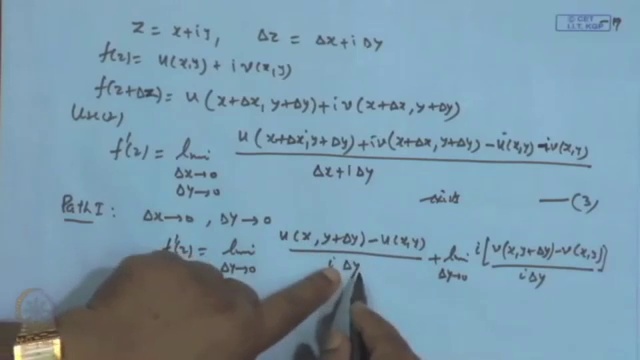 © CET
I.I.T. KGP
z = x+iy, Δz = Δx+iΔy
f(z) = u(x,y) + i v(x,y)
f(z+Δz) = u(x+Δx, y+Δy) + i v(x+Δx, y+Δy)
f'(z) = lim Δx→0 Δy→0 u(x+Δx, y+Δy) + iv(x+Δx, y+Δy) - u(x,y) - iv(x,y) / Δx+iΔy
exists — (3)
Path I: Δx→0, Δy→0
f'(z) = lim Δy→0 u(x, y+Δy) - u(x,y) / iΔy + lim Δy→0 i[v(x,y+Δy) - v(x,y)] / iΔy